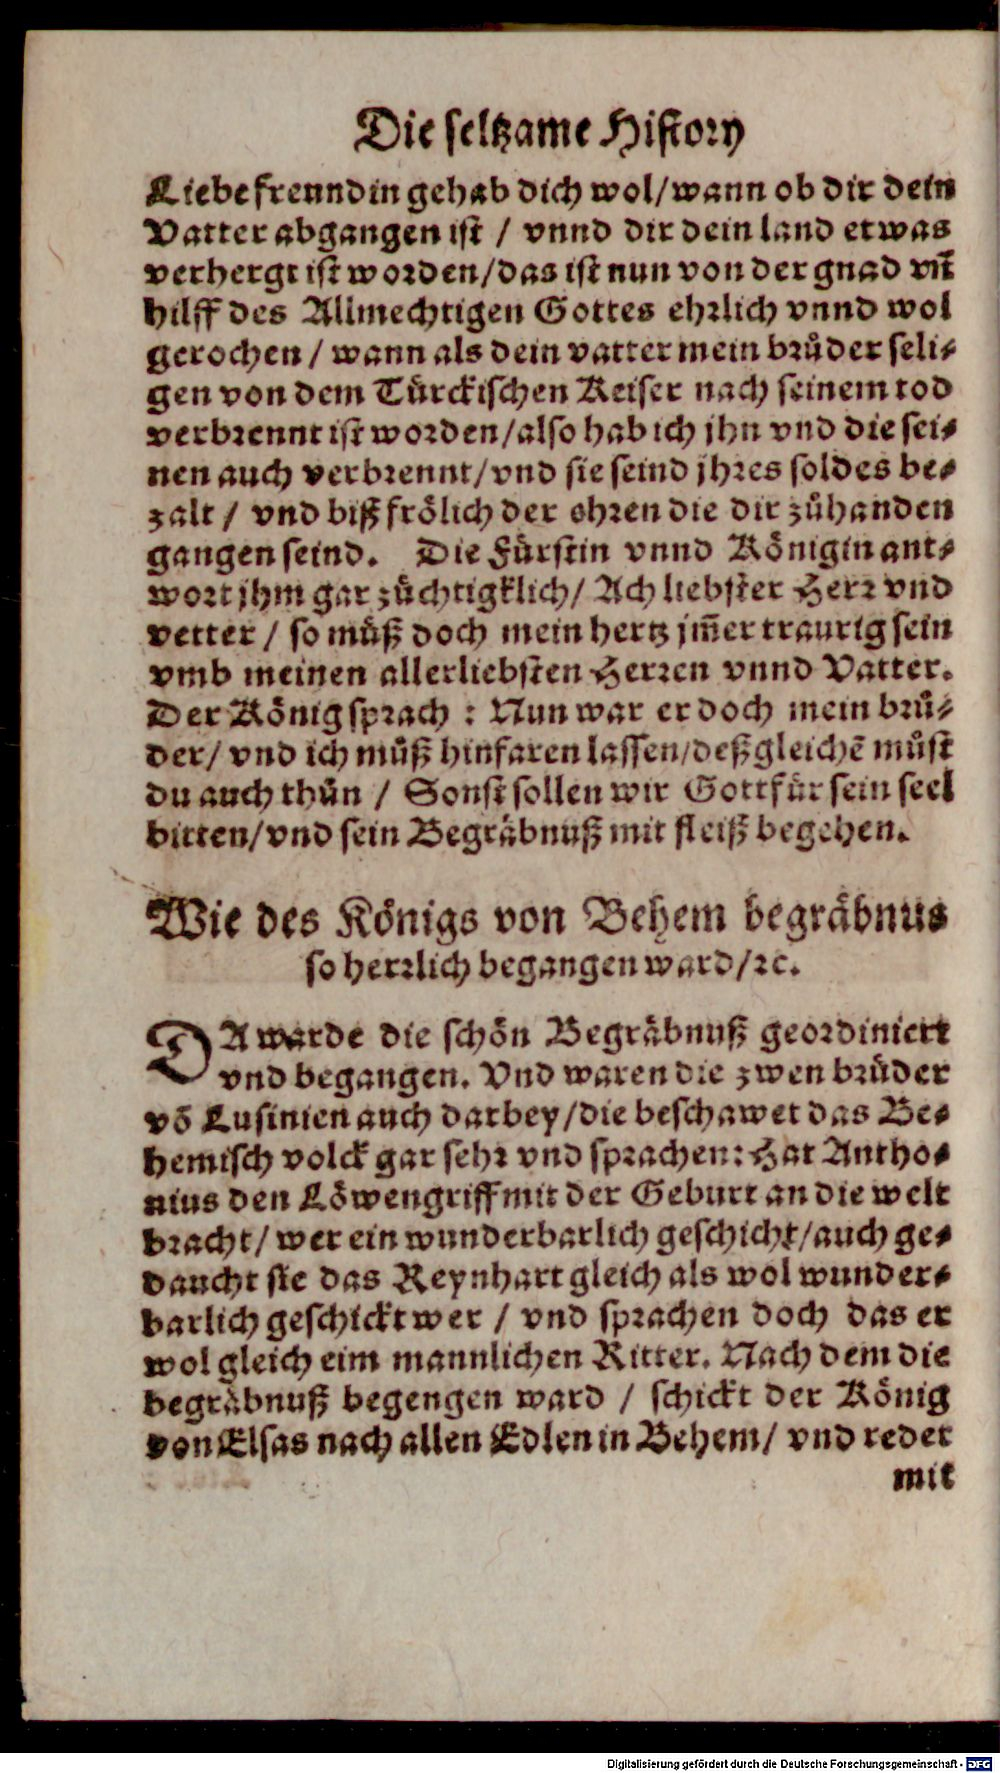 Die seltzame History
Liebe freundin gehab dich wol/wann ob dir dein
Vatter abgangen ist / vnnd dir dein land etwas
verhergt ist worden/das ist nun von der gnad vñ
hilff des Allmechtigen Gottes ehrlich vnnd wol
gerochen / wann als dein vatter mein brůder seli⸗
gen von dem Türckischen Keiser nach seinem tod
verbrennt ist worden/also hab ich jhn vnd die sei⸗
nen auch verbrennt/vnd sie seind jhres soldes be⸗
zalt / vnd biß frölich der ehren die dir zůhanden
gangen seind. Die Fürstin vnnd Königin ant⸗
wort jhm gar züchtigklich/ Ach liebster Herr vnd
vetter / so můß doch mein hertz jm̃er traurig sein
vmb meinen allerliebsten Herren vnnd Vatter.
Der König sprach : Nun war er doch mein brů⸗
der/ vnd ich můß hinfaren lassen/deßgleichẽ můst
du auch thůn / Sonst sollen wir Gott für sein seel
bitten/vnd sein Begräbnuß mit fleiß begehen.
Wie des Königs von Behem begräbnus
so herrlich begangen ward/ꝛc.
DA warde die schön Begräbnuß geordiniert
vnd begangen. Vnd waren die zwen brüder
võ Lusinien auch darbey/die beschawet das Be⸗
hemisch volck gar sehr vnd sprachen: Hat Antho⸗
nius den Löwengriff mit der Geburt an die welt
bracht/ wer ein wunderbarlich geschicht/auch ge⸗
daucht sie das Reynhart gleich als wol wunder⸗
barlich geschickt wer / vnd sprachen doch das er
wol gleich eim mannlichen Ritter. Nach dem die
begräbnuß begengen ward / schickt der König
von Elsas nach allen Edlen in Behem/ vnd redet
mit
Digitalisierung gefördert durch die Deutsche Forschungsgemeinschaft - DFG